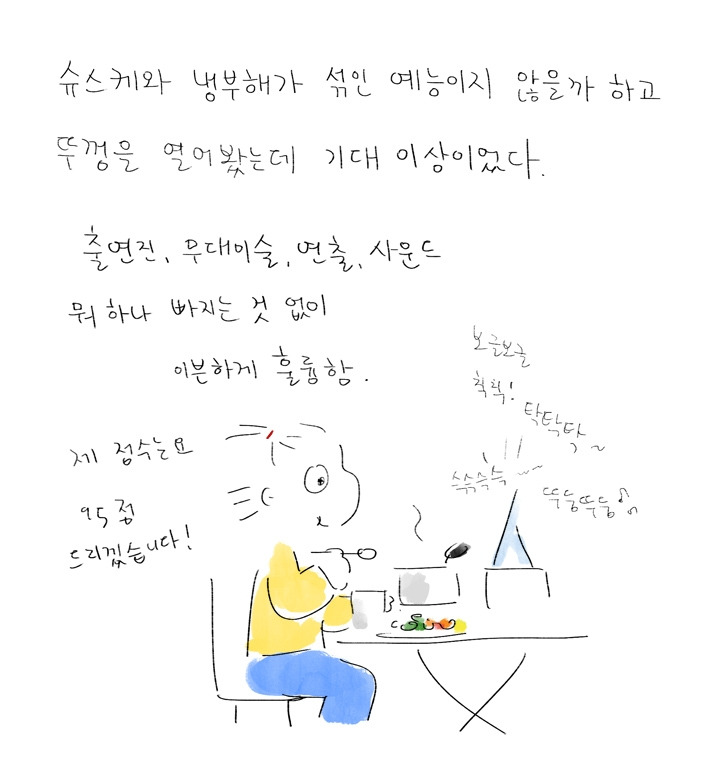 슈스케와 냉부해가 섞인 예능이지 않을까 하고
뚜껑을 열어봤는데 기대 이상이었다.
출연진, 무대미술, 연출, 사운드
뭐 하나 빠지는 것 없이
이븐하게 훌륭함.
제 점수는요
95점
드리겠습니다!
보글보글
칙칙!
탁탁탁
슥슥슥슥
뚜둥뚜둥